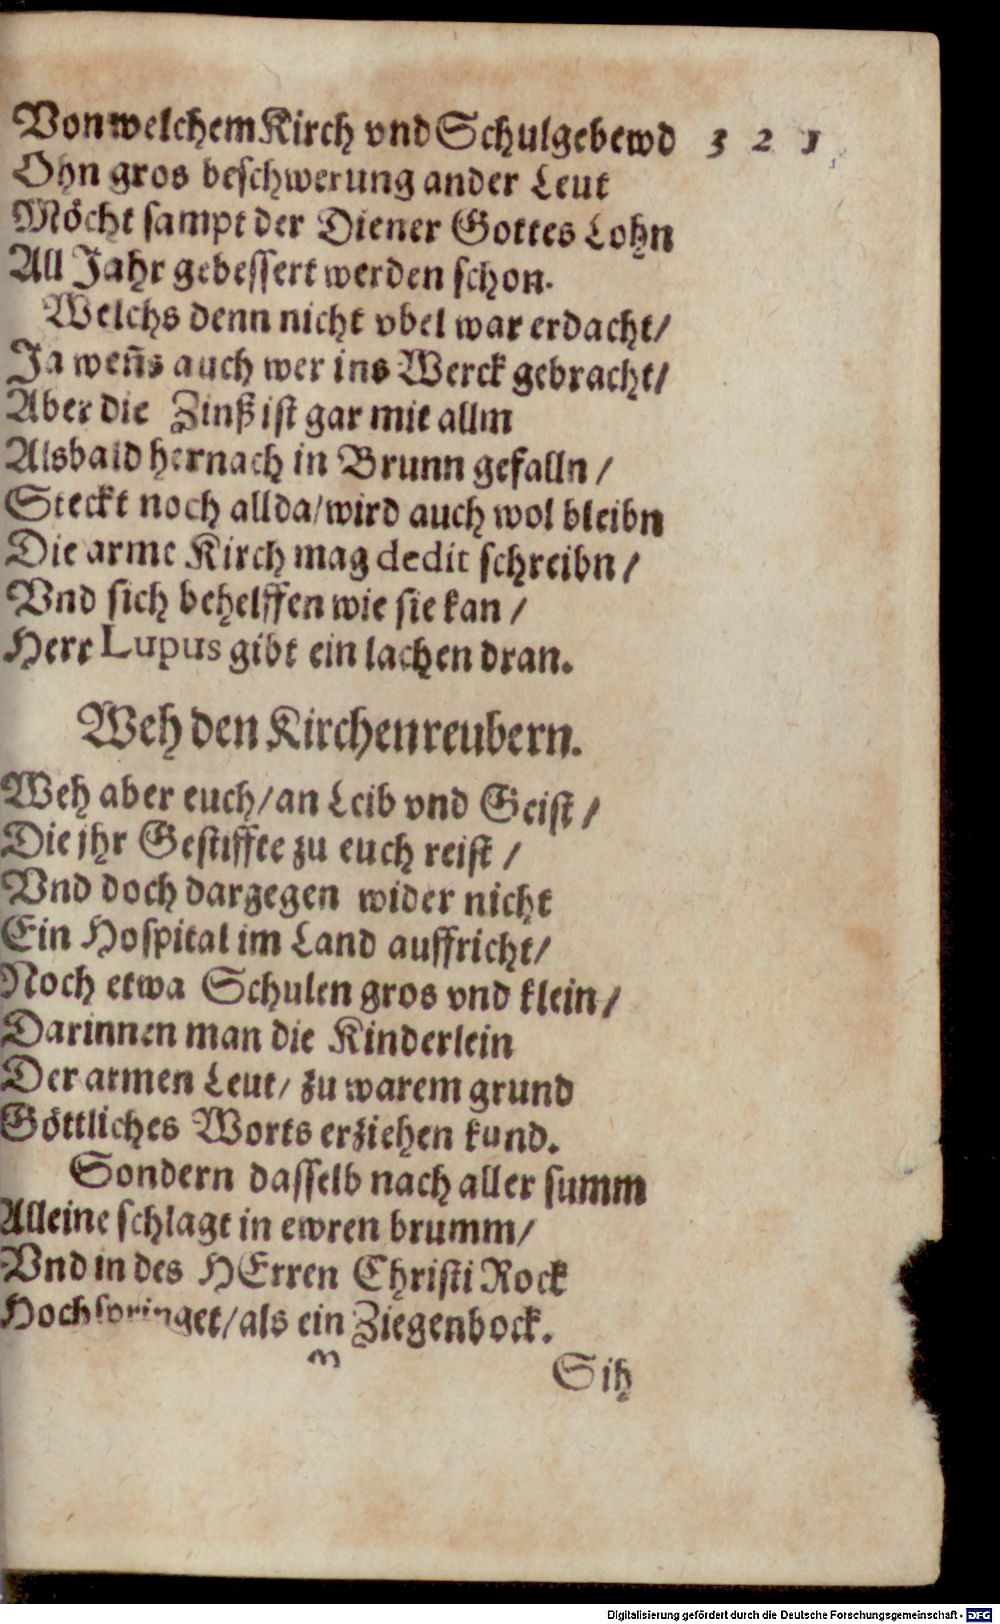 Von welchem Kirch vnd Schulgebewd 321
Ohn gros beschwerung ander Leut
Möcht sampt der Diener Gottes Lohn
All Jahr gebessert werden schon.
Welchs denn nicht vbel war erdacht/
Ja weñs auch wer ins Werck gebracht/
Aber die Zinß ist gar mit allm
Alsbald hernach in Brunn gefalln/
Steckt noch allda/wird auch wol bleibn
Die arme Kirch mag dedit schreibn/
Vnd sich behelffen wie sie kan/
Herr Lupus gibt ein lachen dran.
Weh den Kirchenreubern.
Weh aber euch/an Leib vnd Geist/
Die jhr Gestiffte zu euch reist/
Vnd doch dargegen wider nicht
Ein Hospital im Land auffricht/
Noch etwa Schulen gros vnd klein/
Darinnen man die Kinderlein
Der armen Leut/ zu warem grund
Göttliches Worts erziehen kund.
Sondern dasselb nach aller summ
Alleine schlagt in ewren brumm/
Vnd in des HErren Christi Rock
Hochspringet/als ein Ziegenbock.
Sih
Digitalisierung gefördert durch die Deutsche Forschungsgemeinschaft - DFG